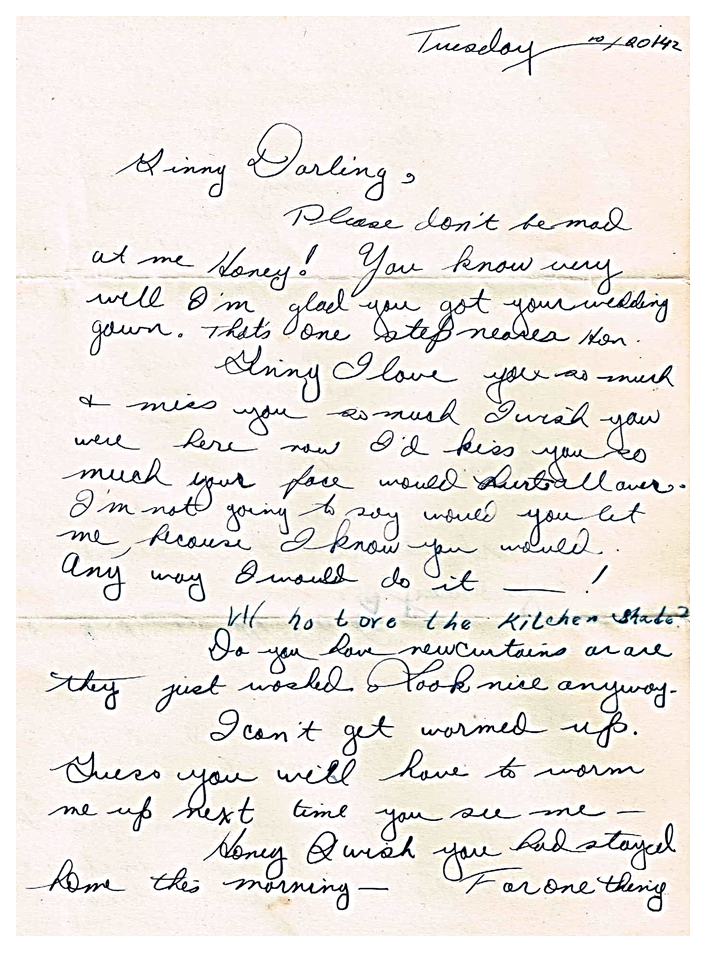 Tuesday 10/20/42
Ginny Darling,
Please don't be mad
at me Honey! You know very
well I'm glad you got your wedding
gown. That's one step nearer Hon.
Ginny I love you so much
& miss you so much I wish you
were here now I'd kiss you so
much your face would hurt all over.
I'm not going to say would you let
me, because I know you would.
Any way I would do it — !
Who tore the Kitchen Shade?
Do you have new curtains or are
they just washed. Look nice anyway.
I can't get warmed up.
Guess you will have to warm
me up next time you see me —
Honey I wish you had stayed
home this morning — For one thing